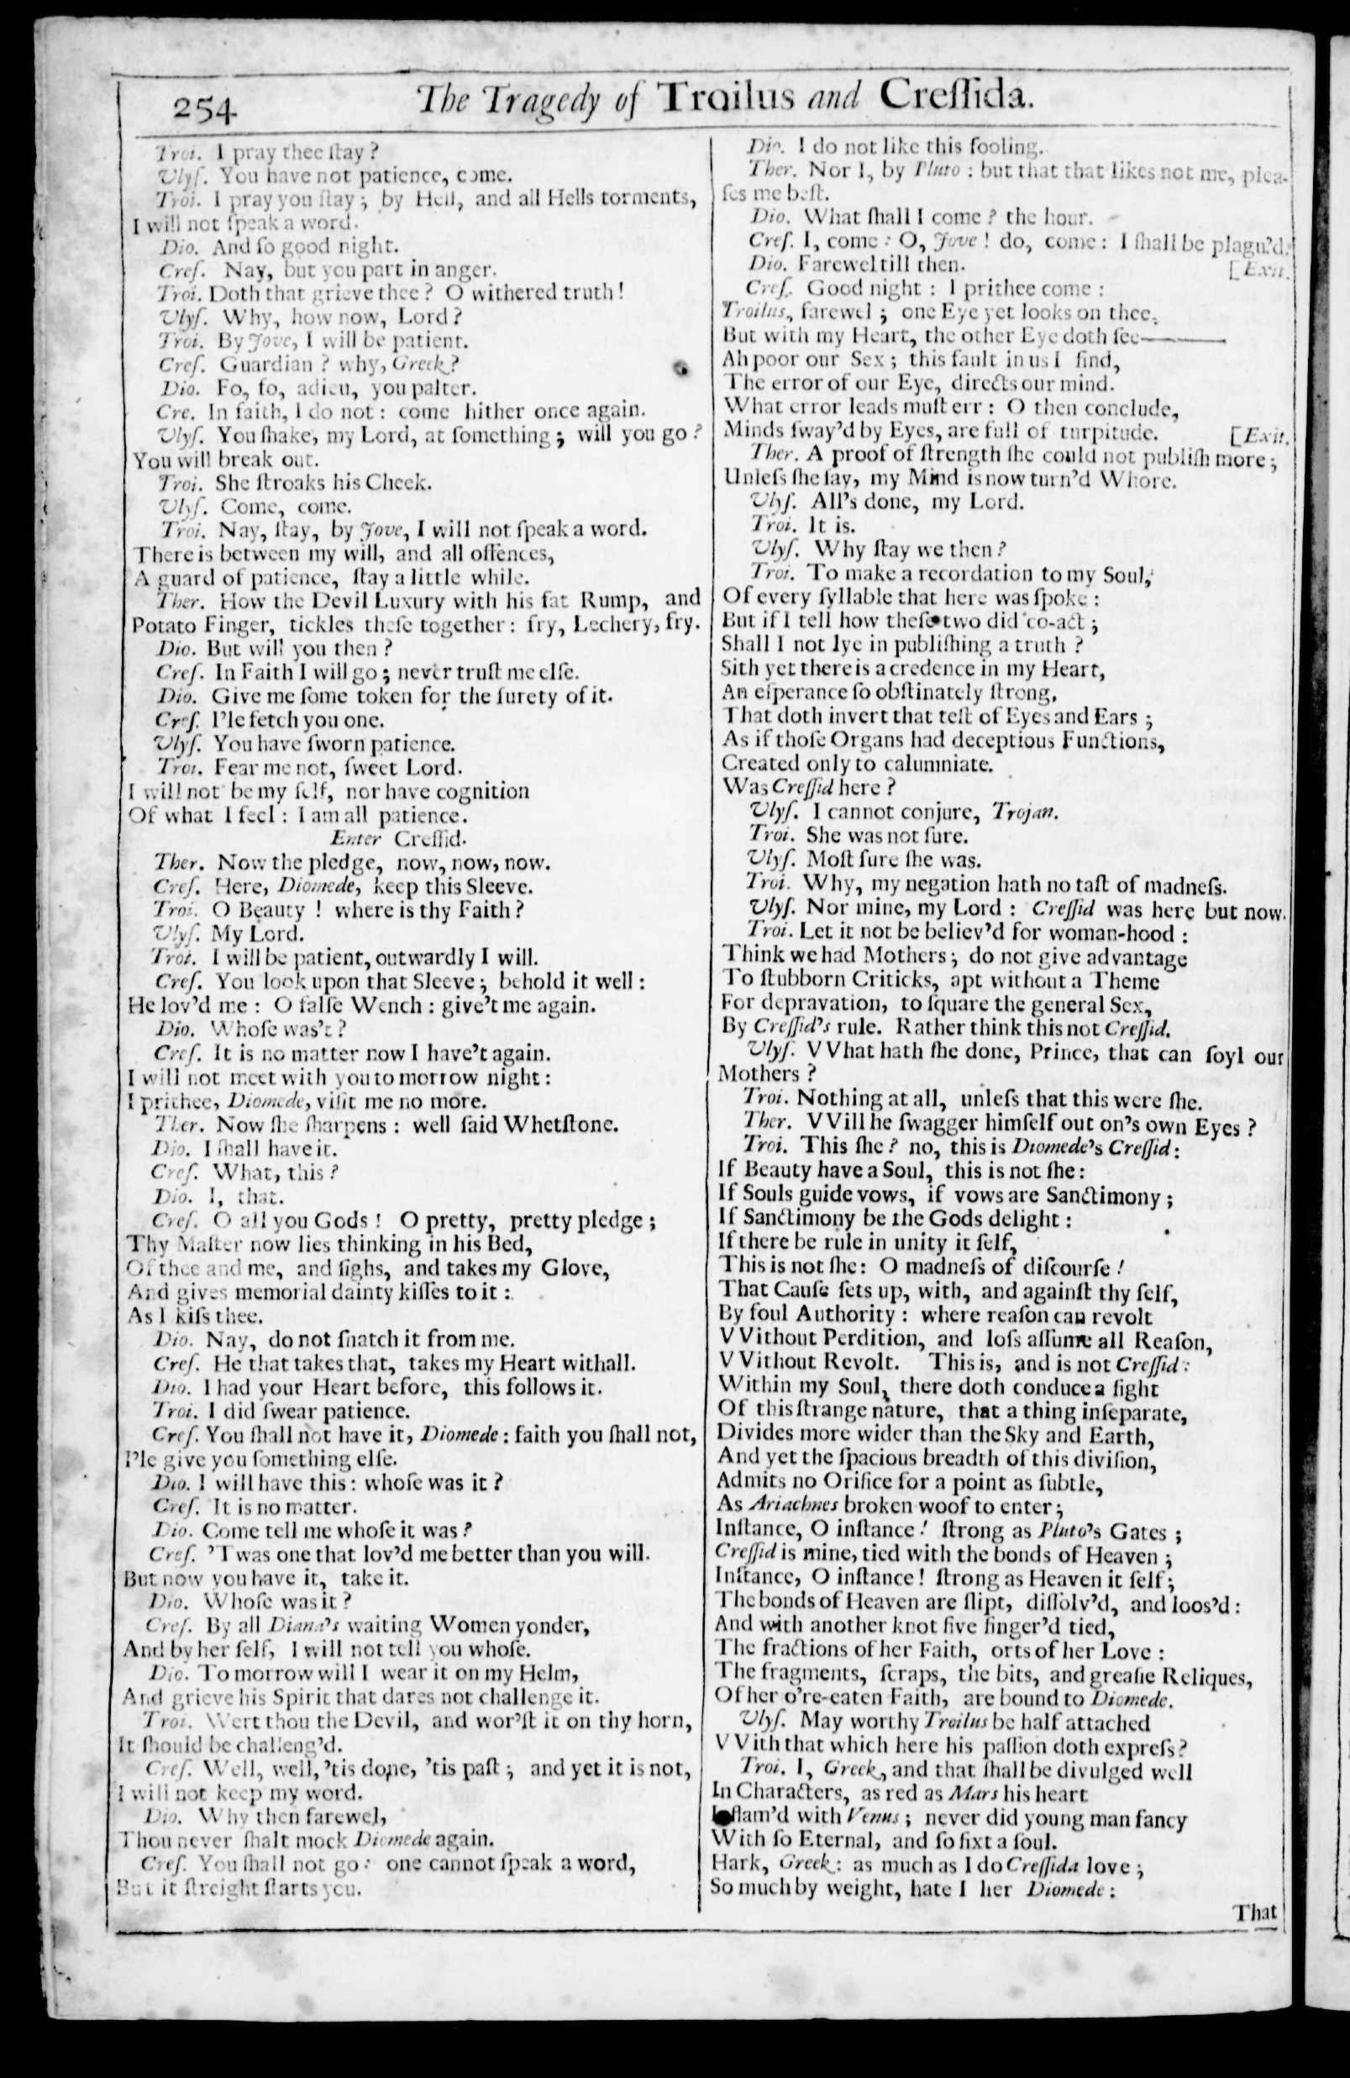 254
The Tragedy of Troilus and Creſſida.
Troi. I pray thee ſtay?
Ulyſ. You have not patience, come.
Troi. I pray you ſtay; by Hell, and all Hells torments,
I will not ſpeak a word.
Dio. And ſo good night.
Creſ. Nay, but you part in anger.
Troi. Doth that grieve thee? O withered truth!
Ulyſ. Why, how now, Lord?
Troi. By Jove, I will be patient.
Creſ. Guardian? why, Greek?
Dio. Fo, fo, adieu, you palter.
Cre. In faith, I do not: come hither once again.
Ulyſ. You ſhake, my Lord, at ſomething; will you go?
You will break out.
Troi. She ſtroaks his Cheek.
Ulyſ. Come, come.
Troi. Nay, ſtay, by Jove, I will not ſpeak a word.
There is between my will, and all offences,
A guard of patience, ſtay a little while.
Ther. How the Devil Luxury with his fat Rump, and
Potato Finger, tickles theſe together: fry, Lechery, fry.
Dio. But will you then?
Creſ. In Faith I will go; never truſt me elſe.
Dio. Give me ſome token for the ſurety of it.
Creſ. I'le fetch you one.
Ulyſ. You have ſworn patience.
Troi. Fear me not, ſweet Lord.
I will not be my ſelf, nor have cognition
Of what I feel: I am all patience.
Enter Creſſid.
Ther. Now the pledge, now, now, now.
Creſ. Here, Diomede, keep this Sleeve.
Troi. O Beauty! where is thy Faith?
Ulyſ. My Lord.
Troi. I will be patient, outwardly I will.
Creſ. You look upon that Sleeve; behold it well:
He lov'd me: O falſe Wench: give't me again.
Dio. Whoſe was't?
Creſ. It is no matter now I have't again.
I will not meet with you to morrow night:
I prithee, Diomede, viſit me no more.
Ther. Now ſhe ſharpens: well ſaid Whetſtone.
Dio. I ſhall have it.
Creſ. What, this?
Dio. I, that.
Creſ. O all you Gods! O pretty, pretty pledge;
Thy Maſter now lies thinking in his Bed,
Of thee and me, and ſighs, and takes my Glove,
And gives memorial dainty kiſſes to it:
As I kiſs thee.
Dio. Nay, do not ſnatch it from me.
Creſ. He that takes that, takes my Heart withall.
Dio. I had your Heart before, this follows it.
Troi. I did ſwear patience.
Creſ. You ſhall not have it, Diomede: faith you ſhall not,
I'le give you ſomething elſe.
Dio. I will have this: whoſe was it?
Creſ. It is no matter.
Dio. Come tell me whoſe it was?
Creſ. 'Twas one that lov'd me better than you will.
But now you have it, take it.
Dio. Whoſe was it?
Creſ. By all Diana's waiting Women yonder,
And by her ſelf, I will not tell you whoſe.
Dio. To morrow will I wear it on my Helm,
And grieve his Spirit that dares not challenge it.
Troi. Wert thou the Devil, and wor'ſt it on thy horn,
It ſhould be challeng'd.
Creſ. Well, well, 'tis done, 'tis paſt; and yet it is not,
I will not keep my word.
Dio. Why then farewel,
Thou never ſhalt mock Diomede again.
Creſ. You ſhall not go: one cannot ſpeak a word,
But it ſtreight ſtarts you.
Dio. I do not like this fooling.
Ther. Nor I, by Pluto: but that that likes not me, plea-
ſes me beſt.
Dio. What ſhall I come? the hour.
Creſ. I, come: O, Jove! do, come: I ſhall be plagu'd.
Dio. Farewel till then. [Exit.
Creſ. Good night: I prithee come:
Troilus, farewel; one Eye yet looks on thee,
But with my Heart, the other Eye doth ſee———
Ah poor our Sex; this fault in us I find,
The error of our Eye, directs our mind.
What error leads muſt err: O then conclude,
Minds ſway'd by Eyes, are full of turpitude. [Exit.
Ther. A proof of ſtrength ſhe could not publiſh more;
Unleſs ſhe ſay, my Mind is now turn'd Whore.
Ulyſ. All's done, my Lord.
Troi. It is.
Ulyſ. Why ſtay we then?
Troi. To make a recordation to my Soul,
Of every ſyllable that here was ſpoke:
But if I tell how theſe two did co-act;
Shall I not lye in publiſhing a truth?
Sith yet there is a credence in my Heart,
An eſperance ſo obſtinately ſtrong,
That doth invert that teſt of Eyes and Ears;
As if thoſe Organs had deceptious Functions,
Created only to calumniate.
Was Creſſid here?
Ulyſ. I cannot conjure, Trojan.
Troi. She was not ſure.
Ulyſ. Moſt ſure ſhe was.
Troi. Why, my negation hath no taſt of madneſs.
Ulyſ. Nor mine, my Lord: Creſſid was here but now.
Troi. Let it not be believ'd for woman-hood:
Think we had Mothers; do not give advantage
To ſtubborn Criticks, apt without a Theme
For depravation, to ſquare the general Sex,
By Creſſid's rule. Rather think this not Creſſid.
Ulyſ. VVhat hath ſhe done, Prince, that can ſoyl our
Mothers?
Troi. Nothing at all, unleſs that this were ſhe.
Ther. VVill he ſwagger himſelf out on's own Eyes?
Troi. This ſhe? no, this is Diomede's Creſſid:
If Beauty have a Soul, this is not ſhe:
If Souls guide vows, if vows are Sanctimony;
If Sanctimony be the Gods delight:
If there be rule in unity it ſelf,
This is not ſhe: O madneſs of diſcourſe!
That Cauſe ſets up, with, and againſt thy ſelf,
By foul Authority: where reaſon can revolt
VVithout Perdition, and loſs aſſume all Reaſon,
VVithout Revolt. This is, and is not Creſſid:
Within my Soul, there doth conduce a fight
Of this ſtrange nature, that a thing inſeparate,
Divides more wider than the Sky and Earth,
And yet the ſpacious breadth of this diviſion,
Admits no Orifice for a point as ſubtle,
As Ariachnes broken woof to enter;
Inſtance, O inſtance! ſtrong as Pluto's Gates;
Creſſid is mine, tied with the bonds of Heaven;
Inſtance, O inſtance! ſtrong as Heaven it ſelf;
The bonds of Heaven are ſlipt, diſſolv'd, and loos'd:
And with another knot five finger'd tied,
The fractions of her Faith, orts of her Love:
The fragments, ſcraps, the bits, and greaſie Reliques,
Of her o're-eaten Faith, are bound to Diomede.
Ulyſ. May worthy Troilus be half attached
VVith that which here his paſſion doth expreſs?
Troi. I, Greek, and that ſhall be divulged well
In Characters, as red as Mars his heart
Inflam'd with Venus; never did young man fancy
With ſo Eternal, and ſo fixt a ſoul.
Hark, Greek: as much as I do Creſſida love;
So much by weight, hate I her Diomede:
That